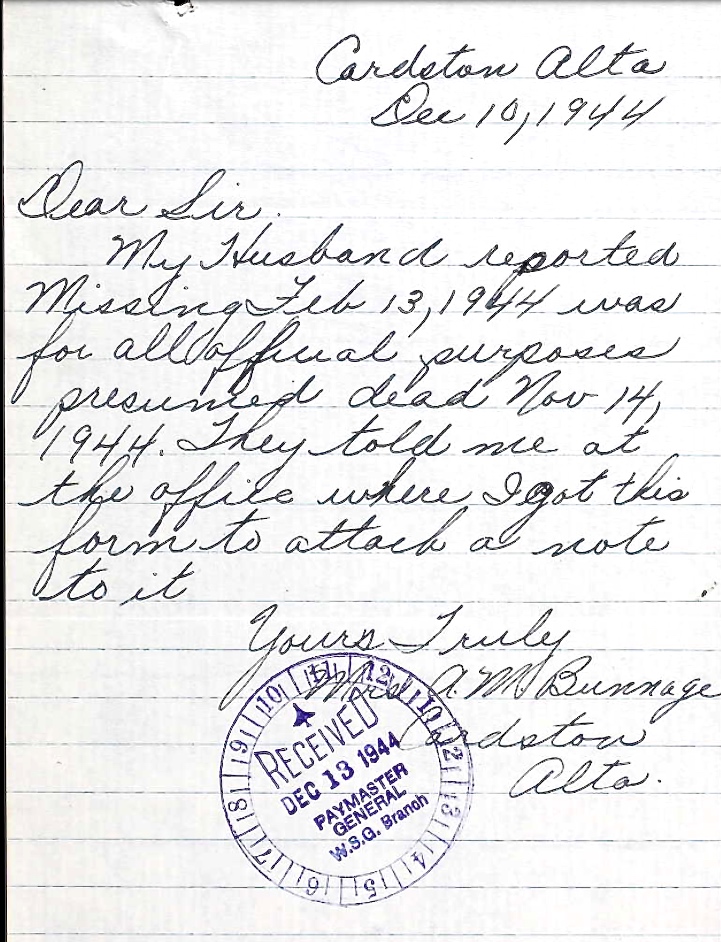 Cardston Alta
Dec 10, 1944
Dear Sir.
My Husband reported
Missing Feb 13, 1944 was
for all official purposes
presumed dead Nov 14,
1944. They told me at
the office where I got this
form to attach a note
to it
Yours Truly
Mrs A.M. Bunnage
Cardston
Alta.
RECEIVED
DEC 13 1944
PAYMASTER
GENERAL
W.S.G. Branch
12 1 2 3 4 5 6 7 8 9 10 11